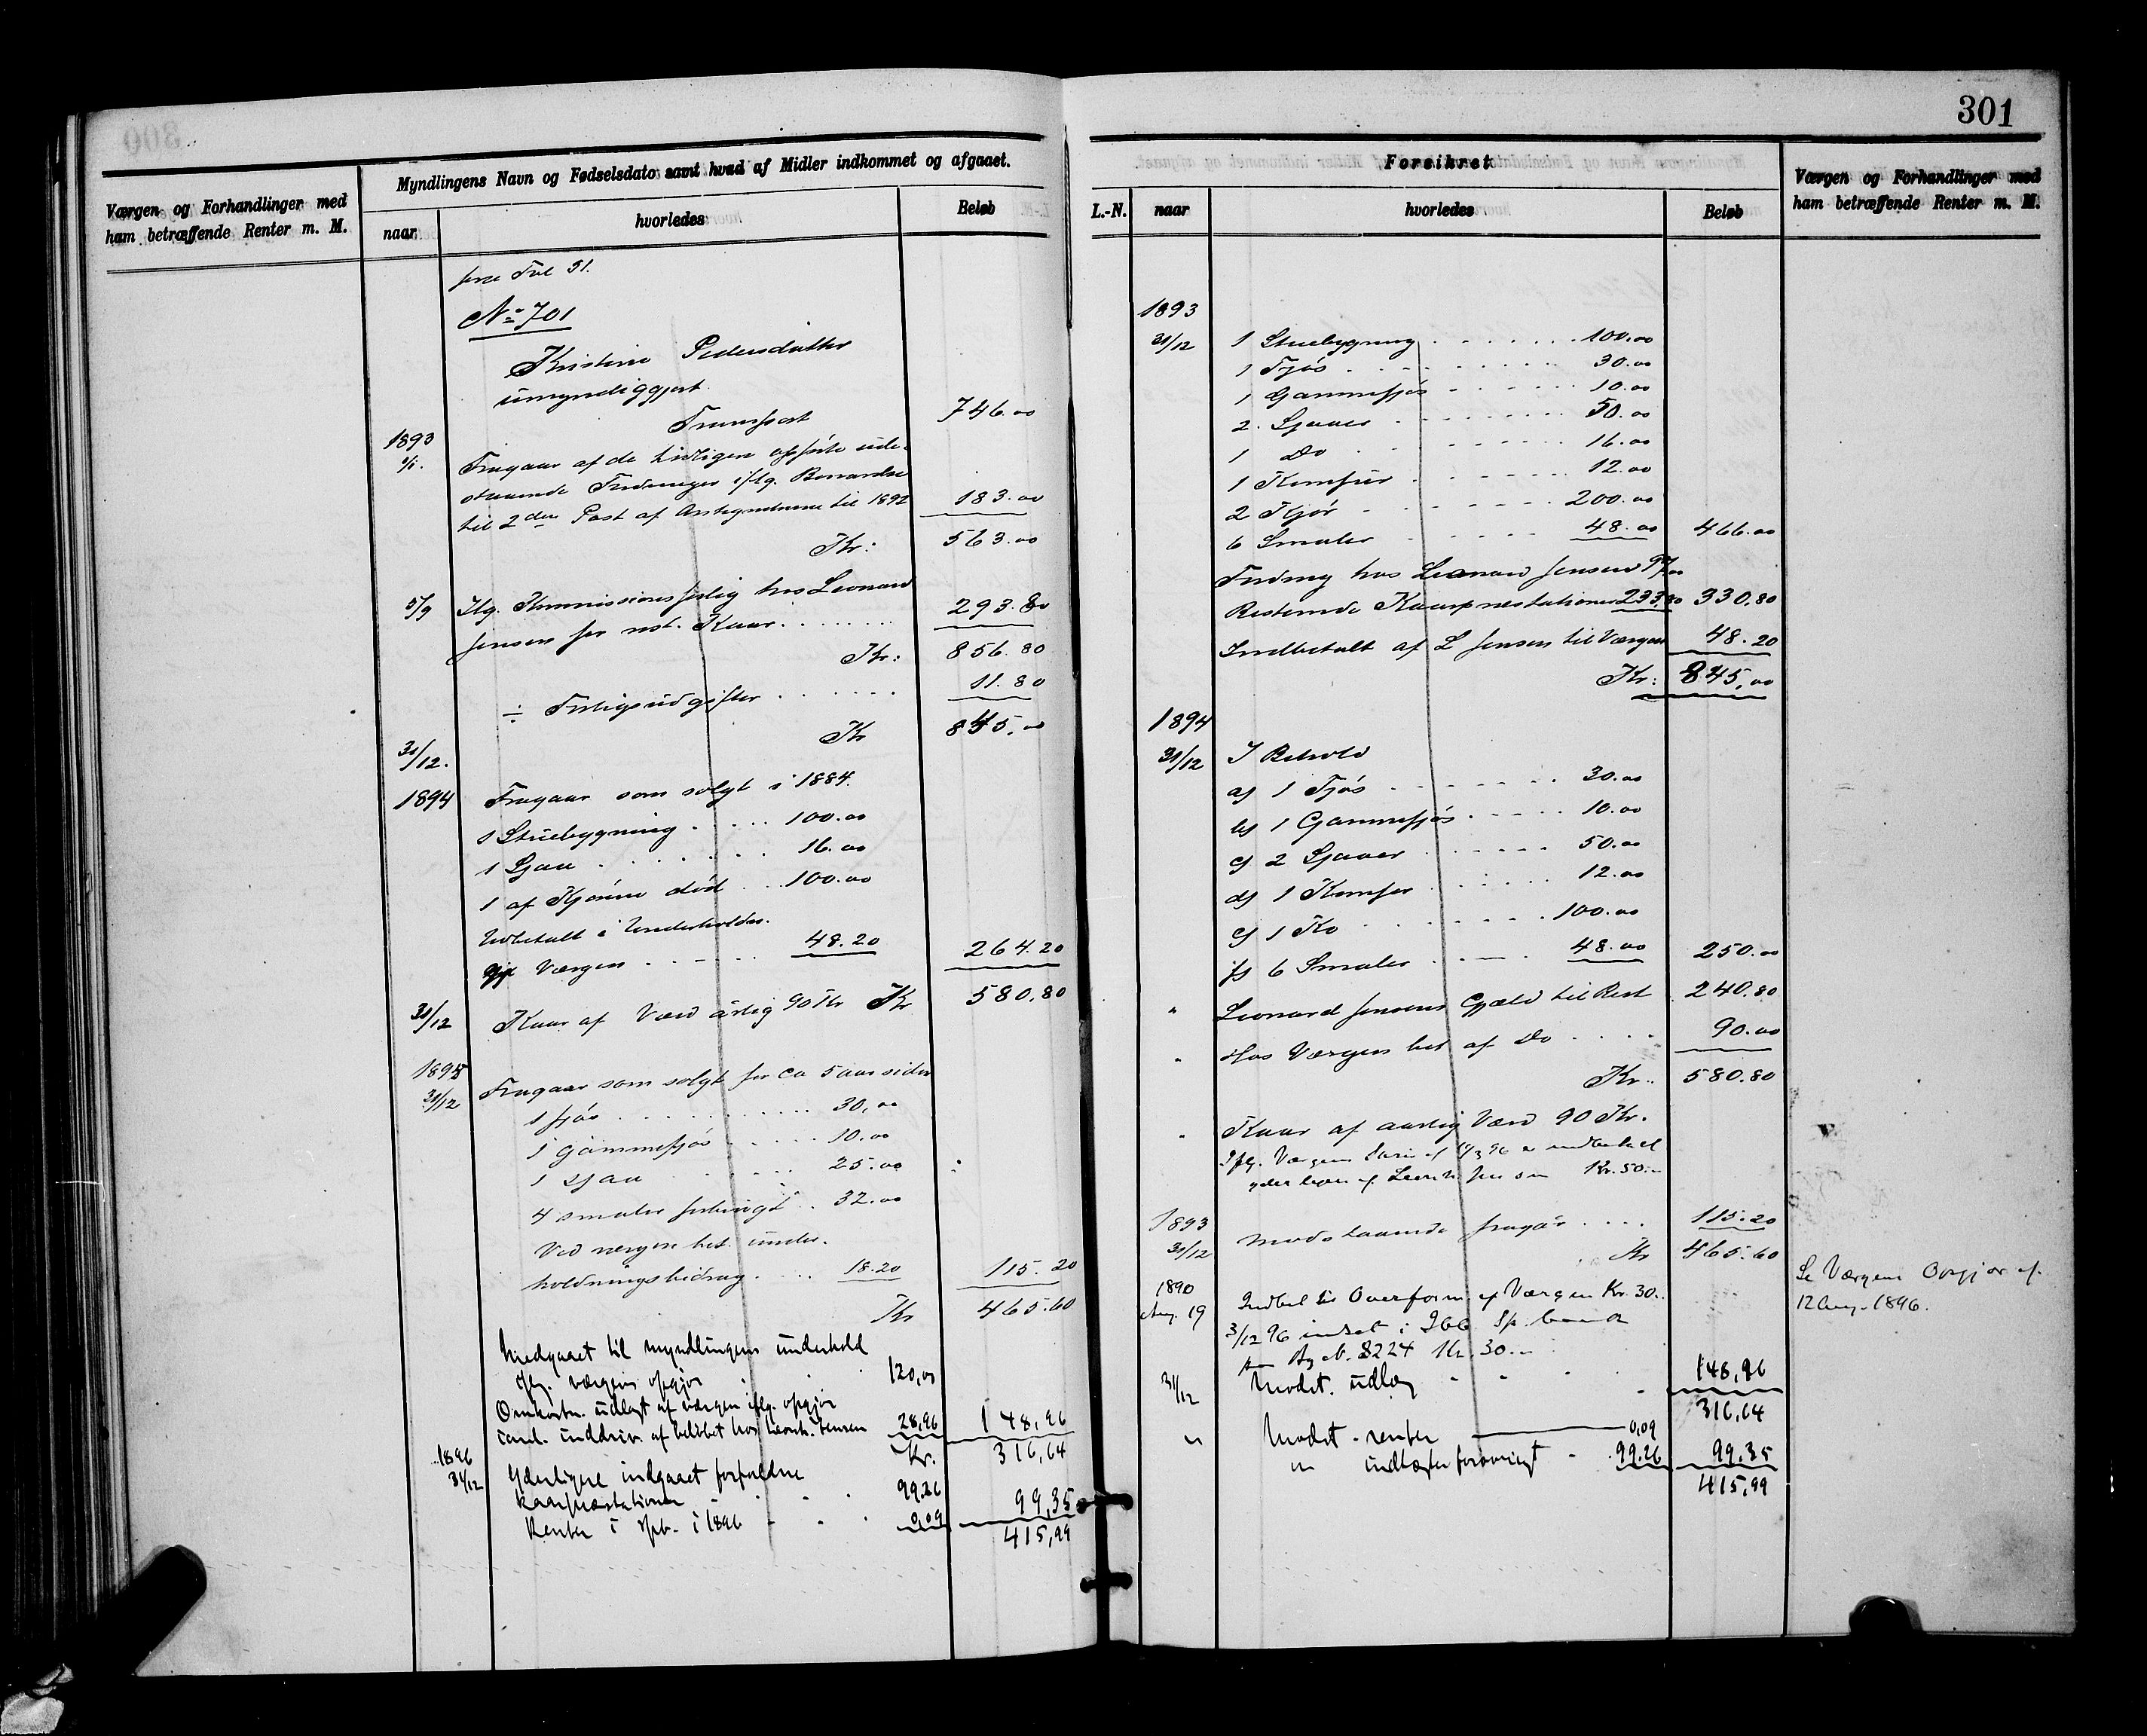 301
Værgen og Forhandlinger med
ham betræffende Renter m. M.
Myndlingens Navn og Fødselsdato samt hvad af Midler indkommet og afgaaet.
naar
hvorledes
Beløb
Fol 51.
No 701
Kristine Pedersdatter
umyndiggjort
Transport 746.00
1893
1/1. Fragaar af de tidligere opførte ude-
staaende Fordringer iflg. Besvarelse
til 2den Post af Antegnelserne til 1892 183.00
Kr: 563.00
5/9 Iflg. Kommissionsforlig hos Leonard
Jensen for rest. Kaar 293.80
Kr: 856.80
÷ Forligsudgifter 11.80
31/12. Kr 845.00
1894 Fragaar som solgt i 1884.
1 Stuebygning 100.00
1 Sjaa 16.00
1 af Kjørene død 100.00
Udbetalt i Underholdn.
Værgen 48.20 264.20
31/12 Kaar af Værd årlig 90 Kr Kr 580.80
1895
31/12 Fragaar som solgt for ca 5 aar siden
1 fjøs 30,00
1 gammefjøs 10.00
1 sjaa 25.00
4 smaler 32.00
Ved værgen bet. under-
holdningsbidrag 18.20 115.20
Kr 465.60
Medgaaet til myndlingens underhold
iflg. værgens opgjør 120,00
Omkostn. udlagt af værgen iflg. opgjør
inddriv. af beløbet hos Leonh. Jensen 28,96 148,96
Kr. 316,64
1896
31/12 Yderligere indgaaet forfaldne
kaarpræstationer 99.26
Renter i 1896 0,09 99,35
415,99
Forsikret
L.-N. naar
hvorledes
Beløb
Værgen og Forhandlinger med
ham betræffende Renter m. M.
1893
31/12 1 Stuebygning 100.00
1 Fjøs 30.00
1 Gammefjøs 10.00
2 Sjaaer 50.00
1 Do 16.00
1 Komfur 12.00
2 Kjør 200.00
6 Smaler 48.00 466.00
Fordring hos Leonard Jensen 97.00
Resterende Kaarpræstationer 233,80 330.80
Indbetalt af L Jensen til Værgen 48.20
Kr: 845,00
1894
31/12 I Behold
a) 1 Fjøs 30.00
b) 1 Gammefjøs 10.00
c) 2 Sjaaer 50.00
d) 1 Komfur 12.00
e) 1 Ko 100.00
f) 6 Smaler 48.00 250.00
" Leonard Jensens Gjæld til Rest 240.80
" Hos Værgen bet af Do 90.00
Kr. 580.80
" Kaar af aarlig Værd 90 Kr.
Iflg. Værgens 96 er indbetalt
yderligere af Leonh. Jensen Kr. 50.–
1893
31/12 modstaaende fragår 115.20
Kr 465.60
1890
Aug. 19 Indbet til Overform af Værgen Kr. 30..
3/12 96 indsat i Sp. bank
N. 8224 Kr. 30.–
31/12 Modst. udlæg 148,96
316,64
" Modst. renter 0,09
" indtægter forøvrigt 99.26 99.35
415,99
Se Værgens Opgjør af
12 Aug. 1896.